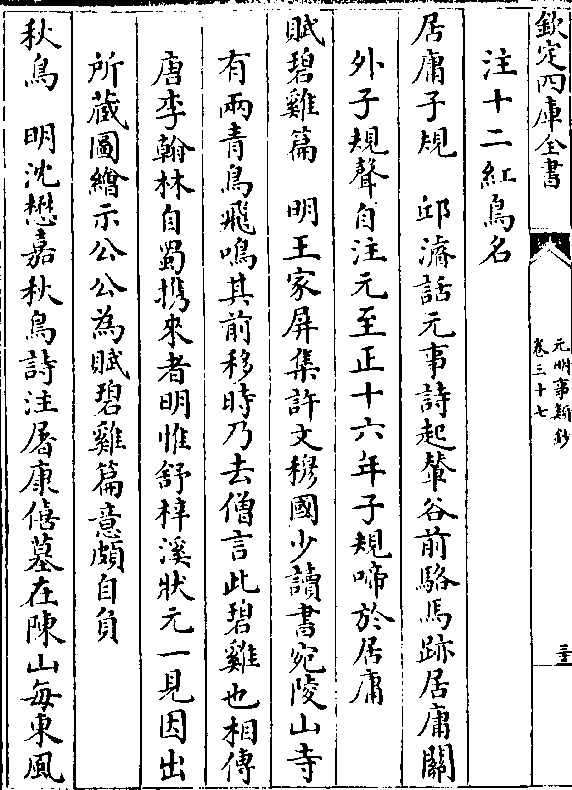 欽定四庫全書
元明事類鈔
卷三十七
注十二紅鳥名
居庸子規　邱濬話元事詩起輦谷前駱馬跡居庸關
外子規聲自注元至正十六年子規啼於居庸
賦碧雞篇　明王家屏集許文穆國少讀書宛陵山寺
有兩青鳥飛鳴其前移時乃去僧言此碧雞也相傳
唐李翰林自蜀攜來者明惟舒梓溪狀元一見因出
所藏圖繪示公公為賦碧雞篇意頗自負
秋鳥　明沈懋嘉秋鳥詩注屠康僖墓在陳山每東風